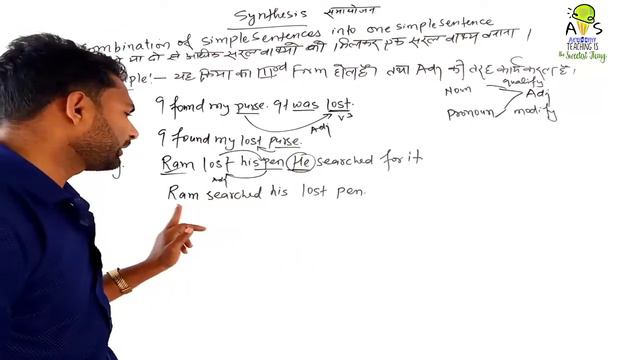 Synthesis समायोजन
Combination of simple sentences into one simple sentence
या दो से अधिक सरल वाक्यों को मिलाकर एक सरल वाक्य बनाना ।
ple :- यह क्रिया का IIIrd Form होता है। तथा Adj की तरह कार्य करता है।
qualify
Noun Adj
Pronoun modify
I found my purse. It was lost.
Adj V3
I found my lost purse.
Ram lost his pen He searched for it
Adj
Ram searched his lost pen.
AS
ACADEMY
TEACHING IS
the Sweetest Thing